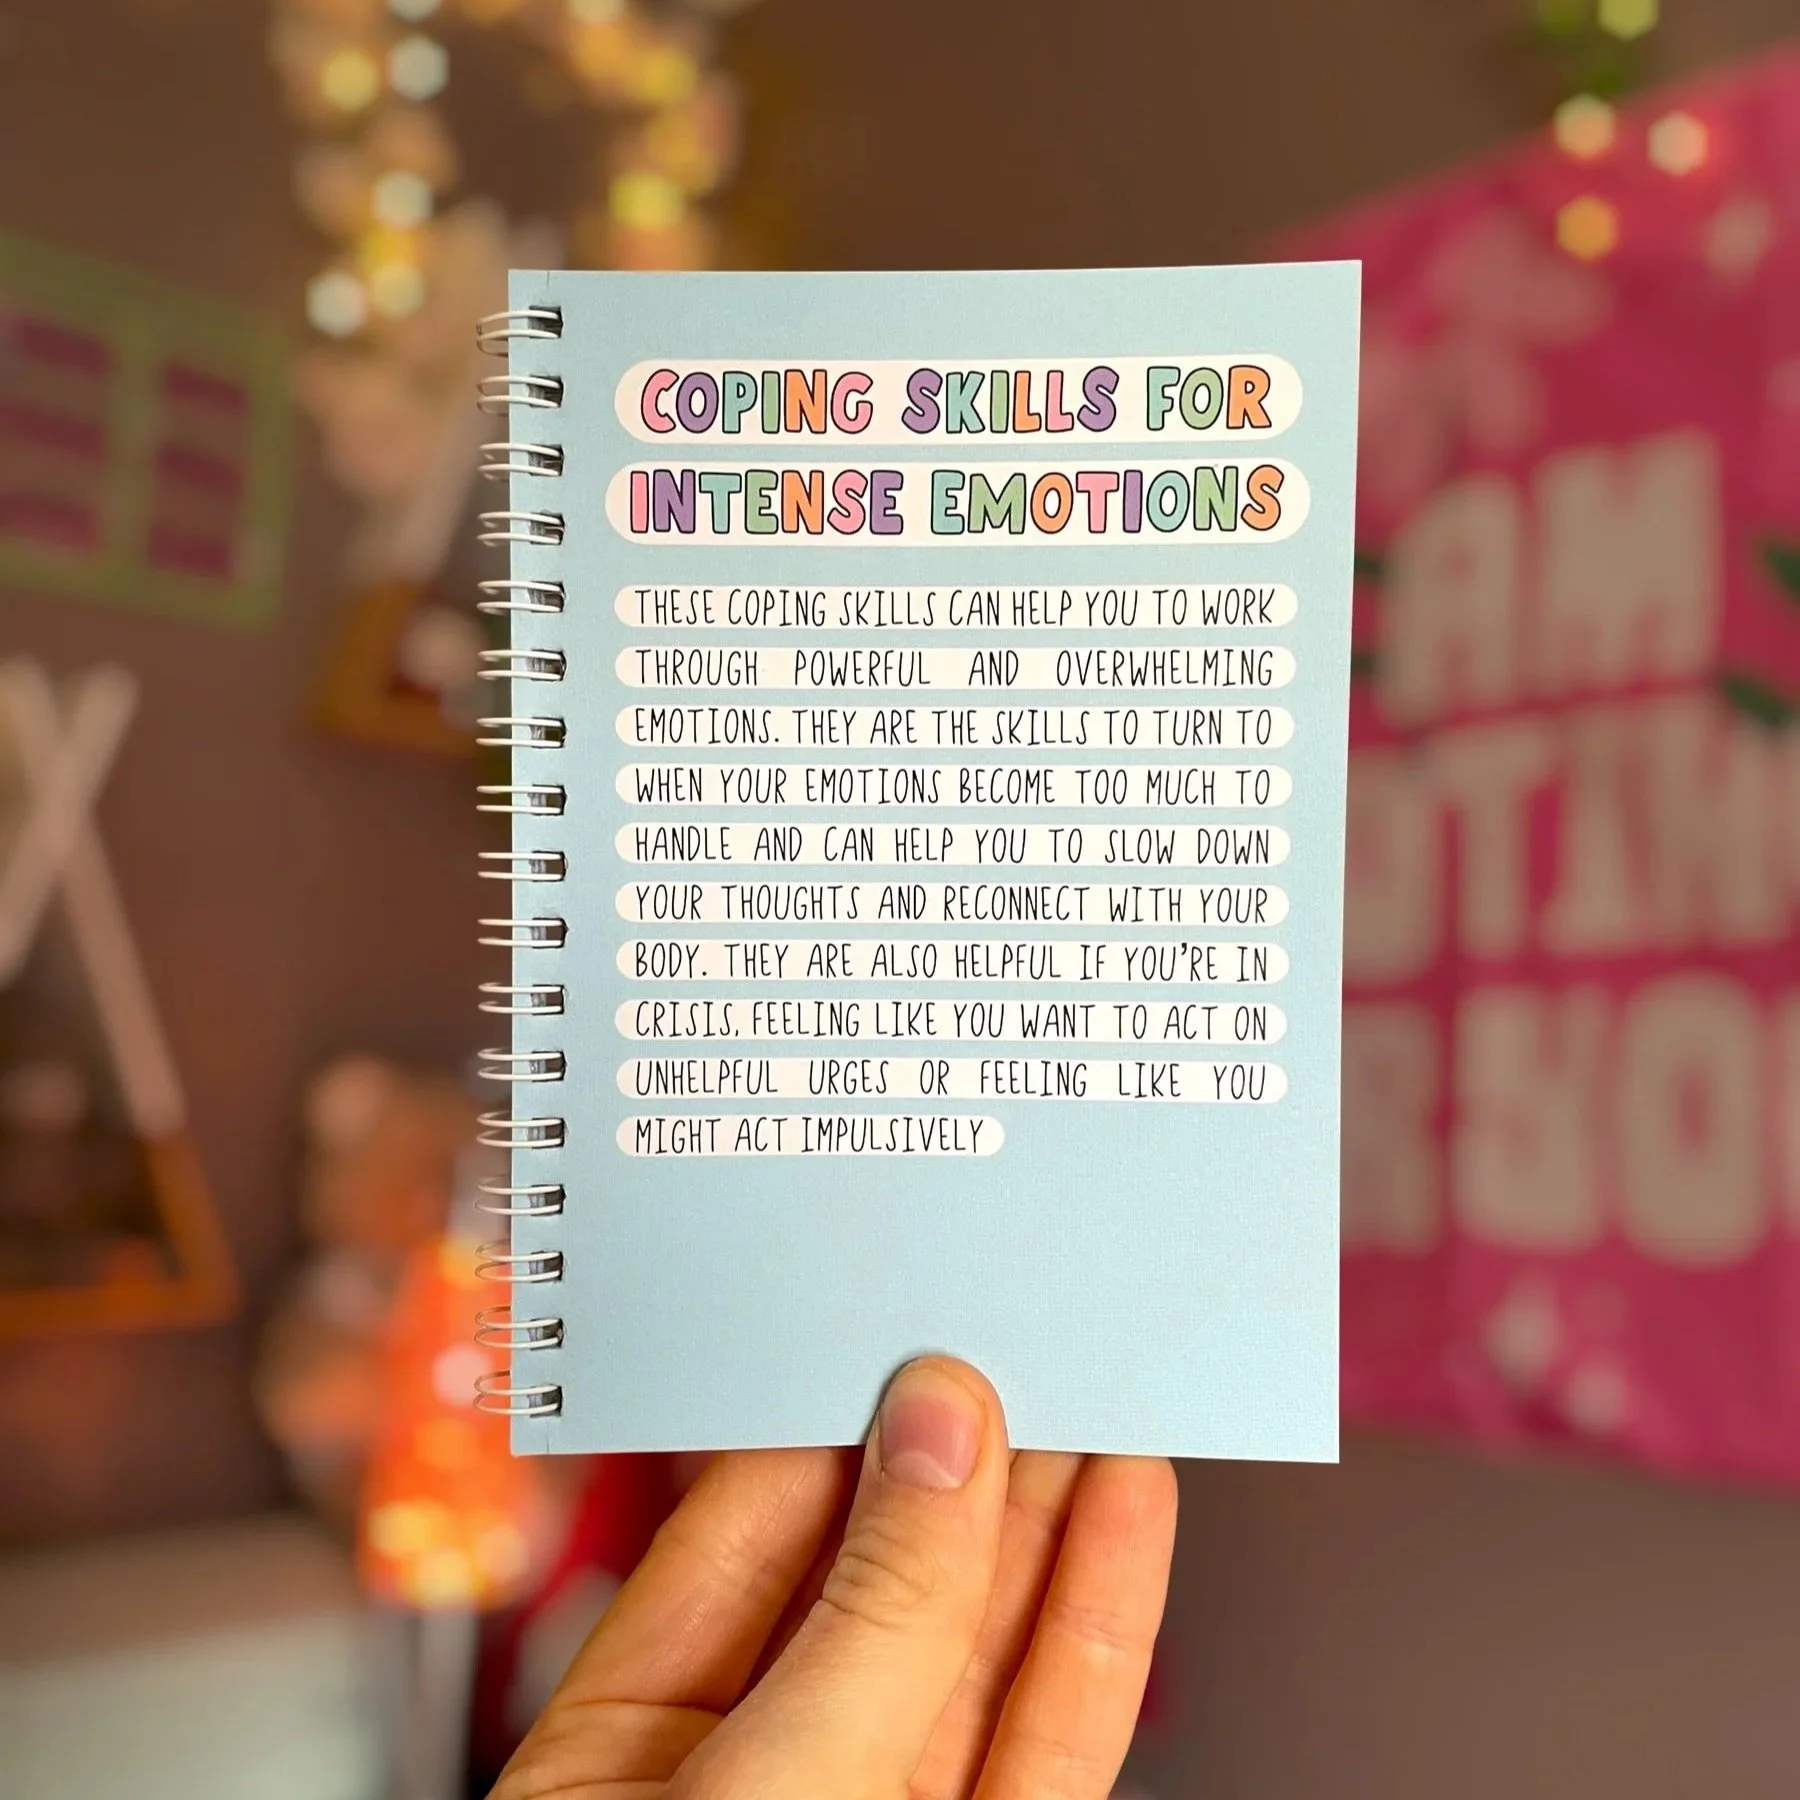 COPING SKILLS FOR
INTENSE EMOTIONS
THESE COPING SKILLS CAN HELP YOU TO WORK
THROUGH POWERFUL AND OVERWHELMING
EMOTIONS. THEY ARE THE SKILLS TO TURN TO
WHEN YOUR EMOTIONS BECOME TOO MUCH TO
HANDLE AND CAN HELP YOU TO SLOW DOWN
YOUR THOUGHTS AND RECONNECT WITH YOUR
BODY. THEY ARE ALSO HELPFUL IF YOU'RE IN
CRISIS, FEELING LIKE YOU WANT TO ACT ON
UNHELPFUL URGES OR FEELING LIKE YOU
MIGHT ACT IMPULSIVELY